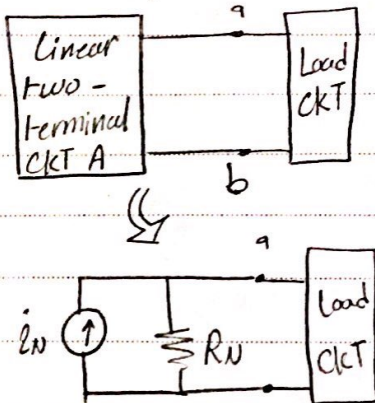 a
Linear
two-
terminal
CKT A
Load
CKT
b
a
iN
RN
Load
CKT